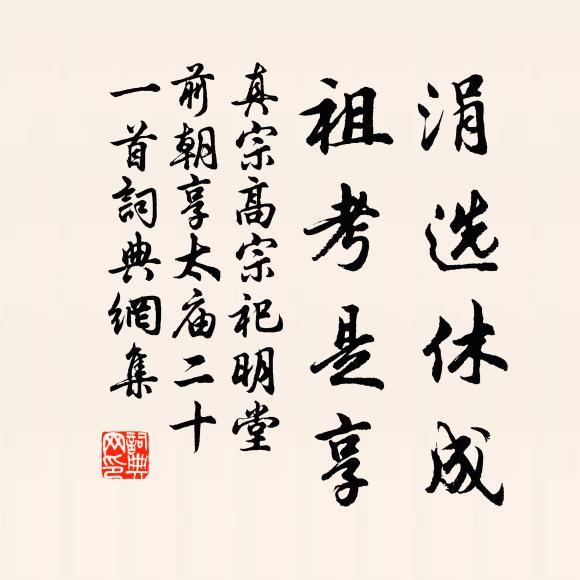 涓选休成
祖考是享
真宗高宗祀明堂
前朝享太庙二十
一首詞典網集
詞典网印